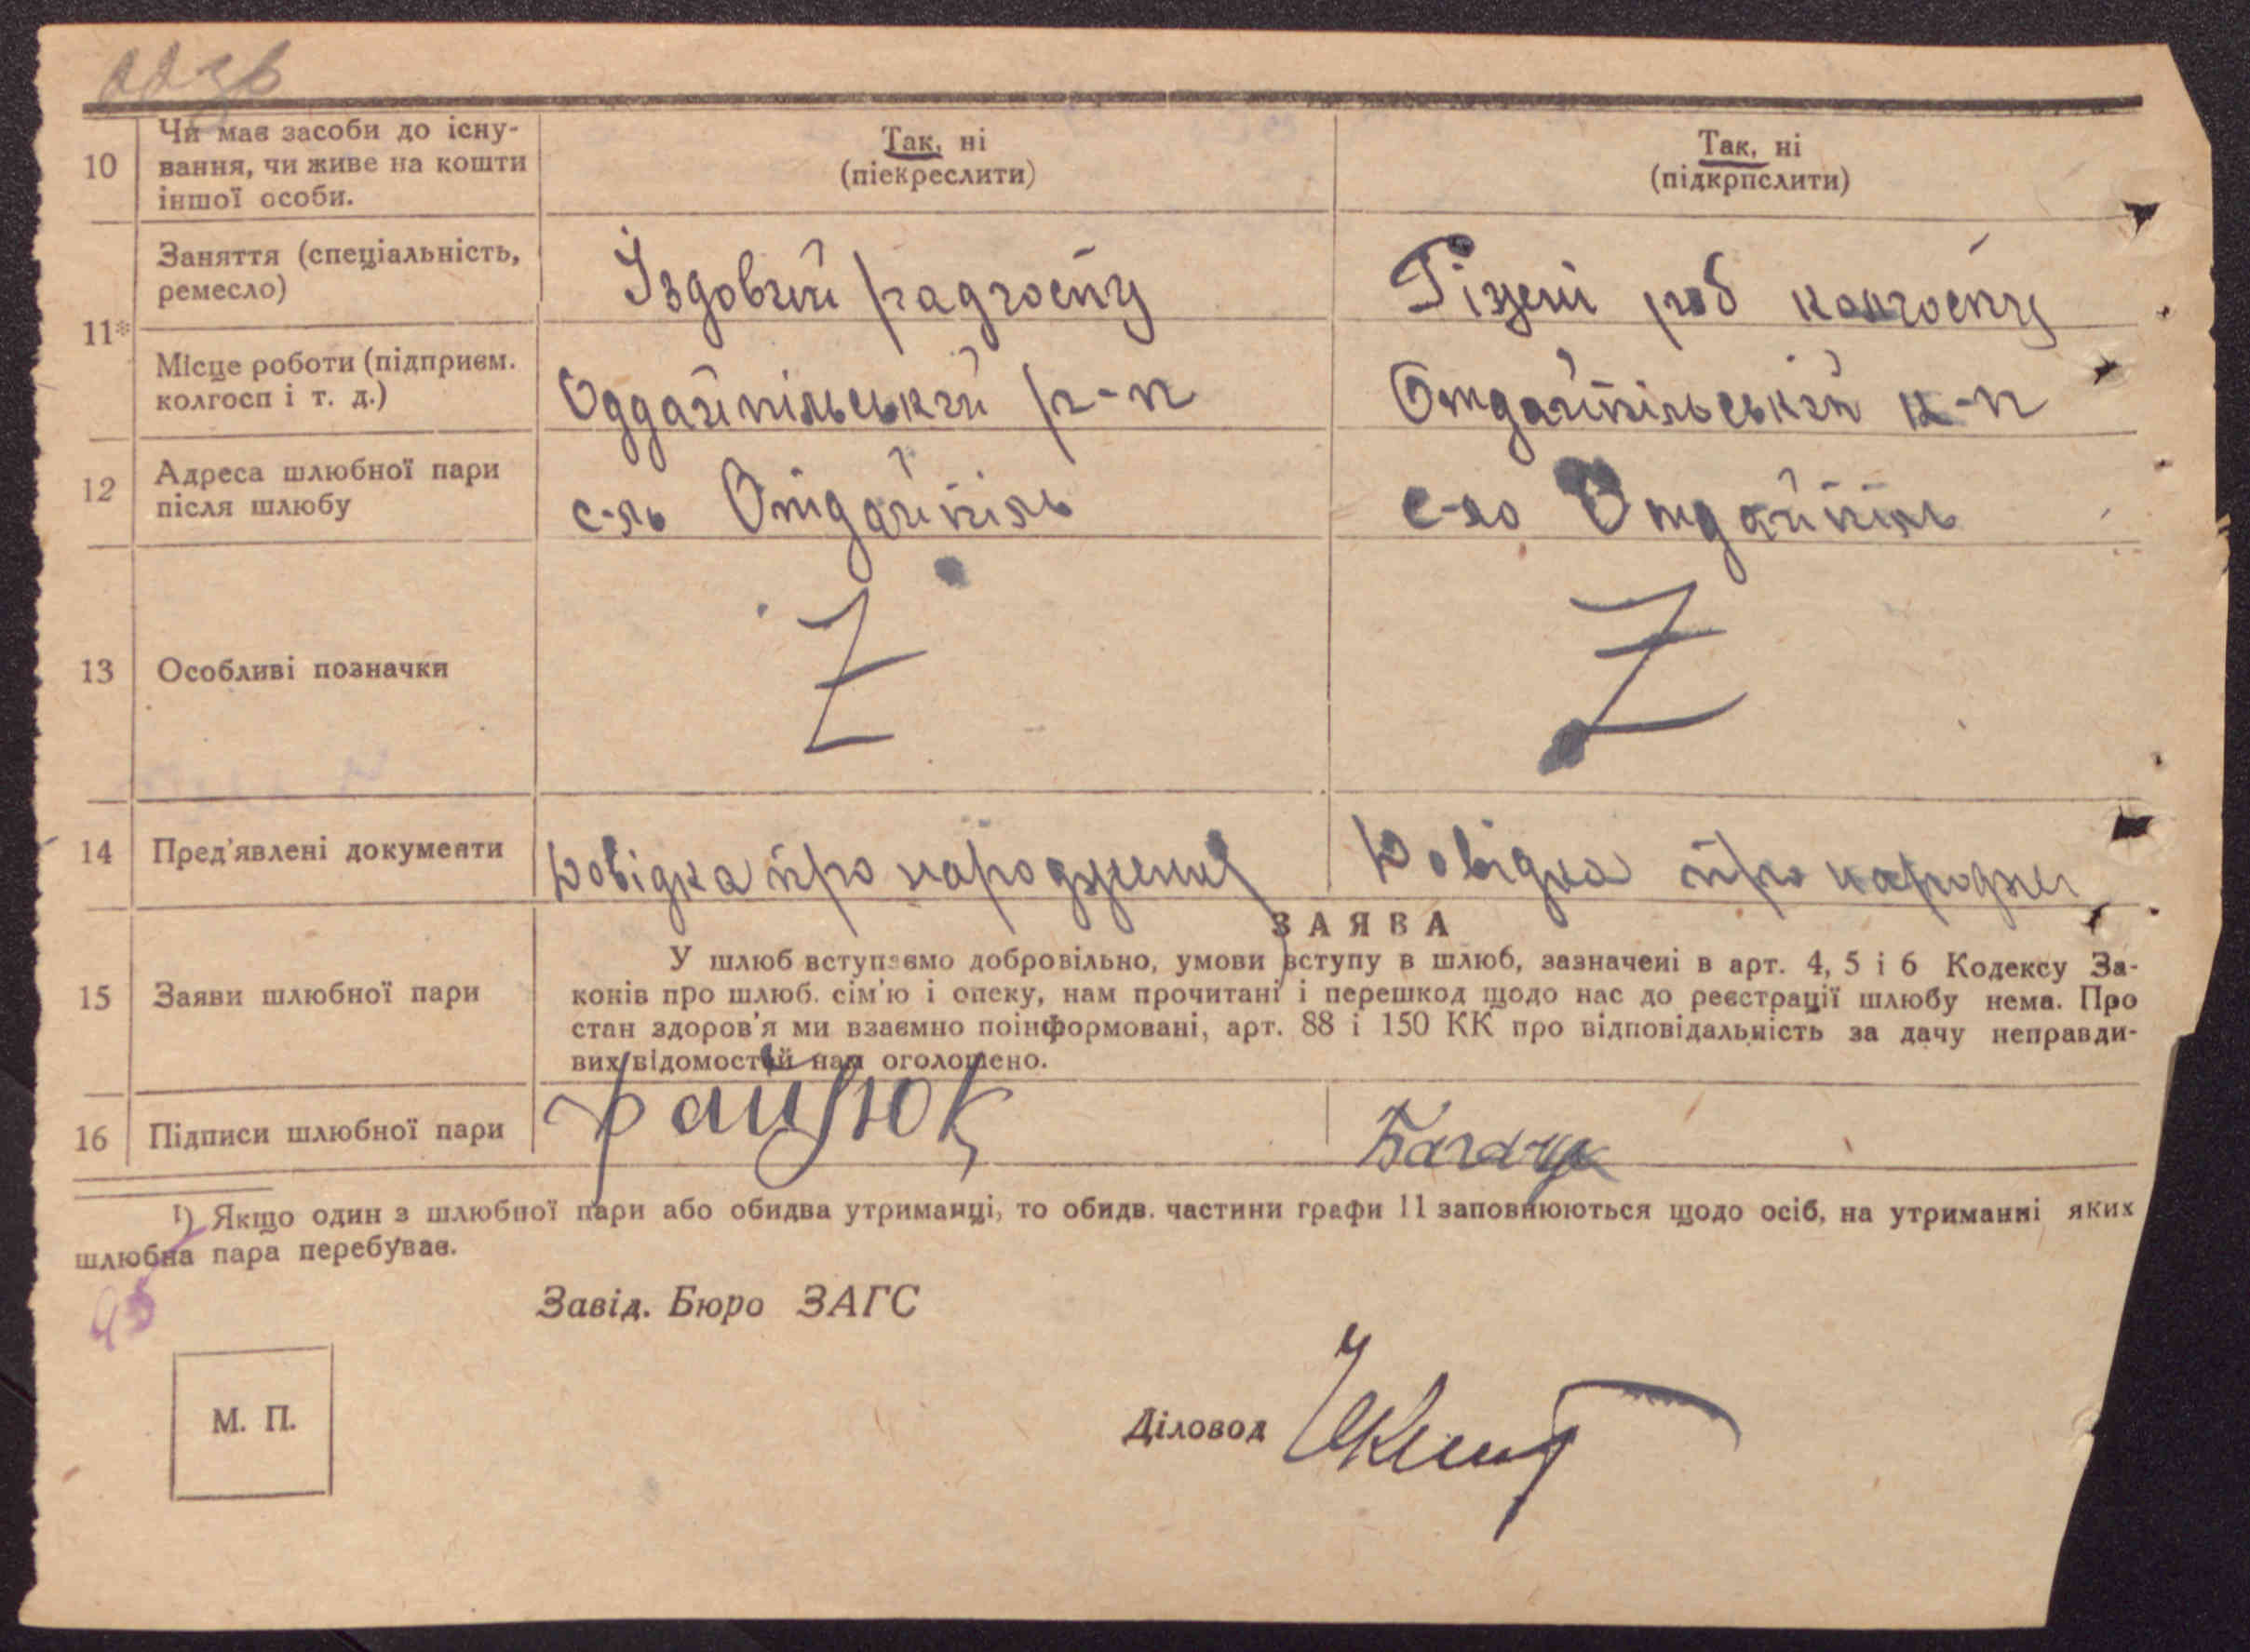 10
Чи має засоби до існу-
вання, чи живе на кошти
іншої особи.
Так, ні
(піекреслити)
Так, ні
(підкрпслити)
11*
Заняття (спеціальність,
ремесло)
Їздовий радгоспу
Різні роб колгоспу
Місце роботи (підприєм.
колгосп і т. д.)
Оддайпільський р-п
Отдайпільський к-п
12
Адреса шлюбної пари
після шлюбу
с-ль Отдайпіль
с-ло Отдайпіль
13
Особливі позначки
Z
Z
14
Пред'явлені документи
Довідка про народження
Довідка про народжен
15
Заяви шлюбної пари
ЗАЯВА
У шлюб вступаємо добровільно, умови вступу в шлюб, зазначені в арт. 4, 5 і 6 Кодексу За-
конів про шлюб. сім'ю і опеку, нам прочитані і перешкод щодо нас до реєстрації шлюбу нема. Про
стан здоров'я ми взаємно поінформовані, арт. 88 і 150 КК про відповідальність за дачу неправди-
вих відомостей нам оголошено.
16
Підписи шлюбної пари
1) Якщо один з шлюбної пари або обидва утриманці, то обидв. частини графи 11 заповнюються щодо осіб, на утриманні яких
шлюбна пара перебуває.
95
Завід. Бюро ЗАГС
М. П.
Діловод